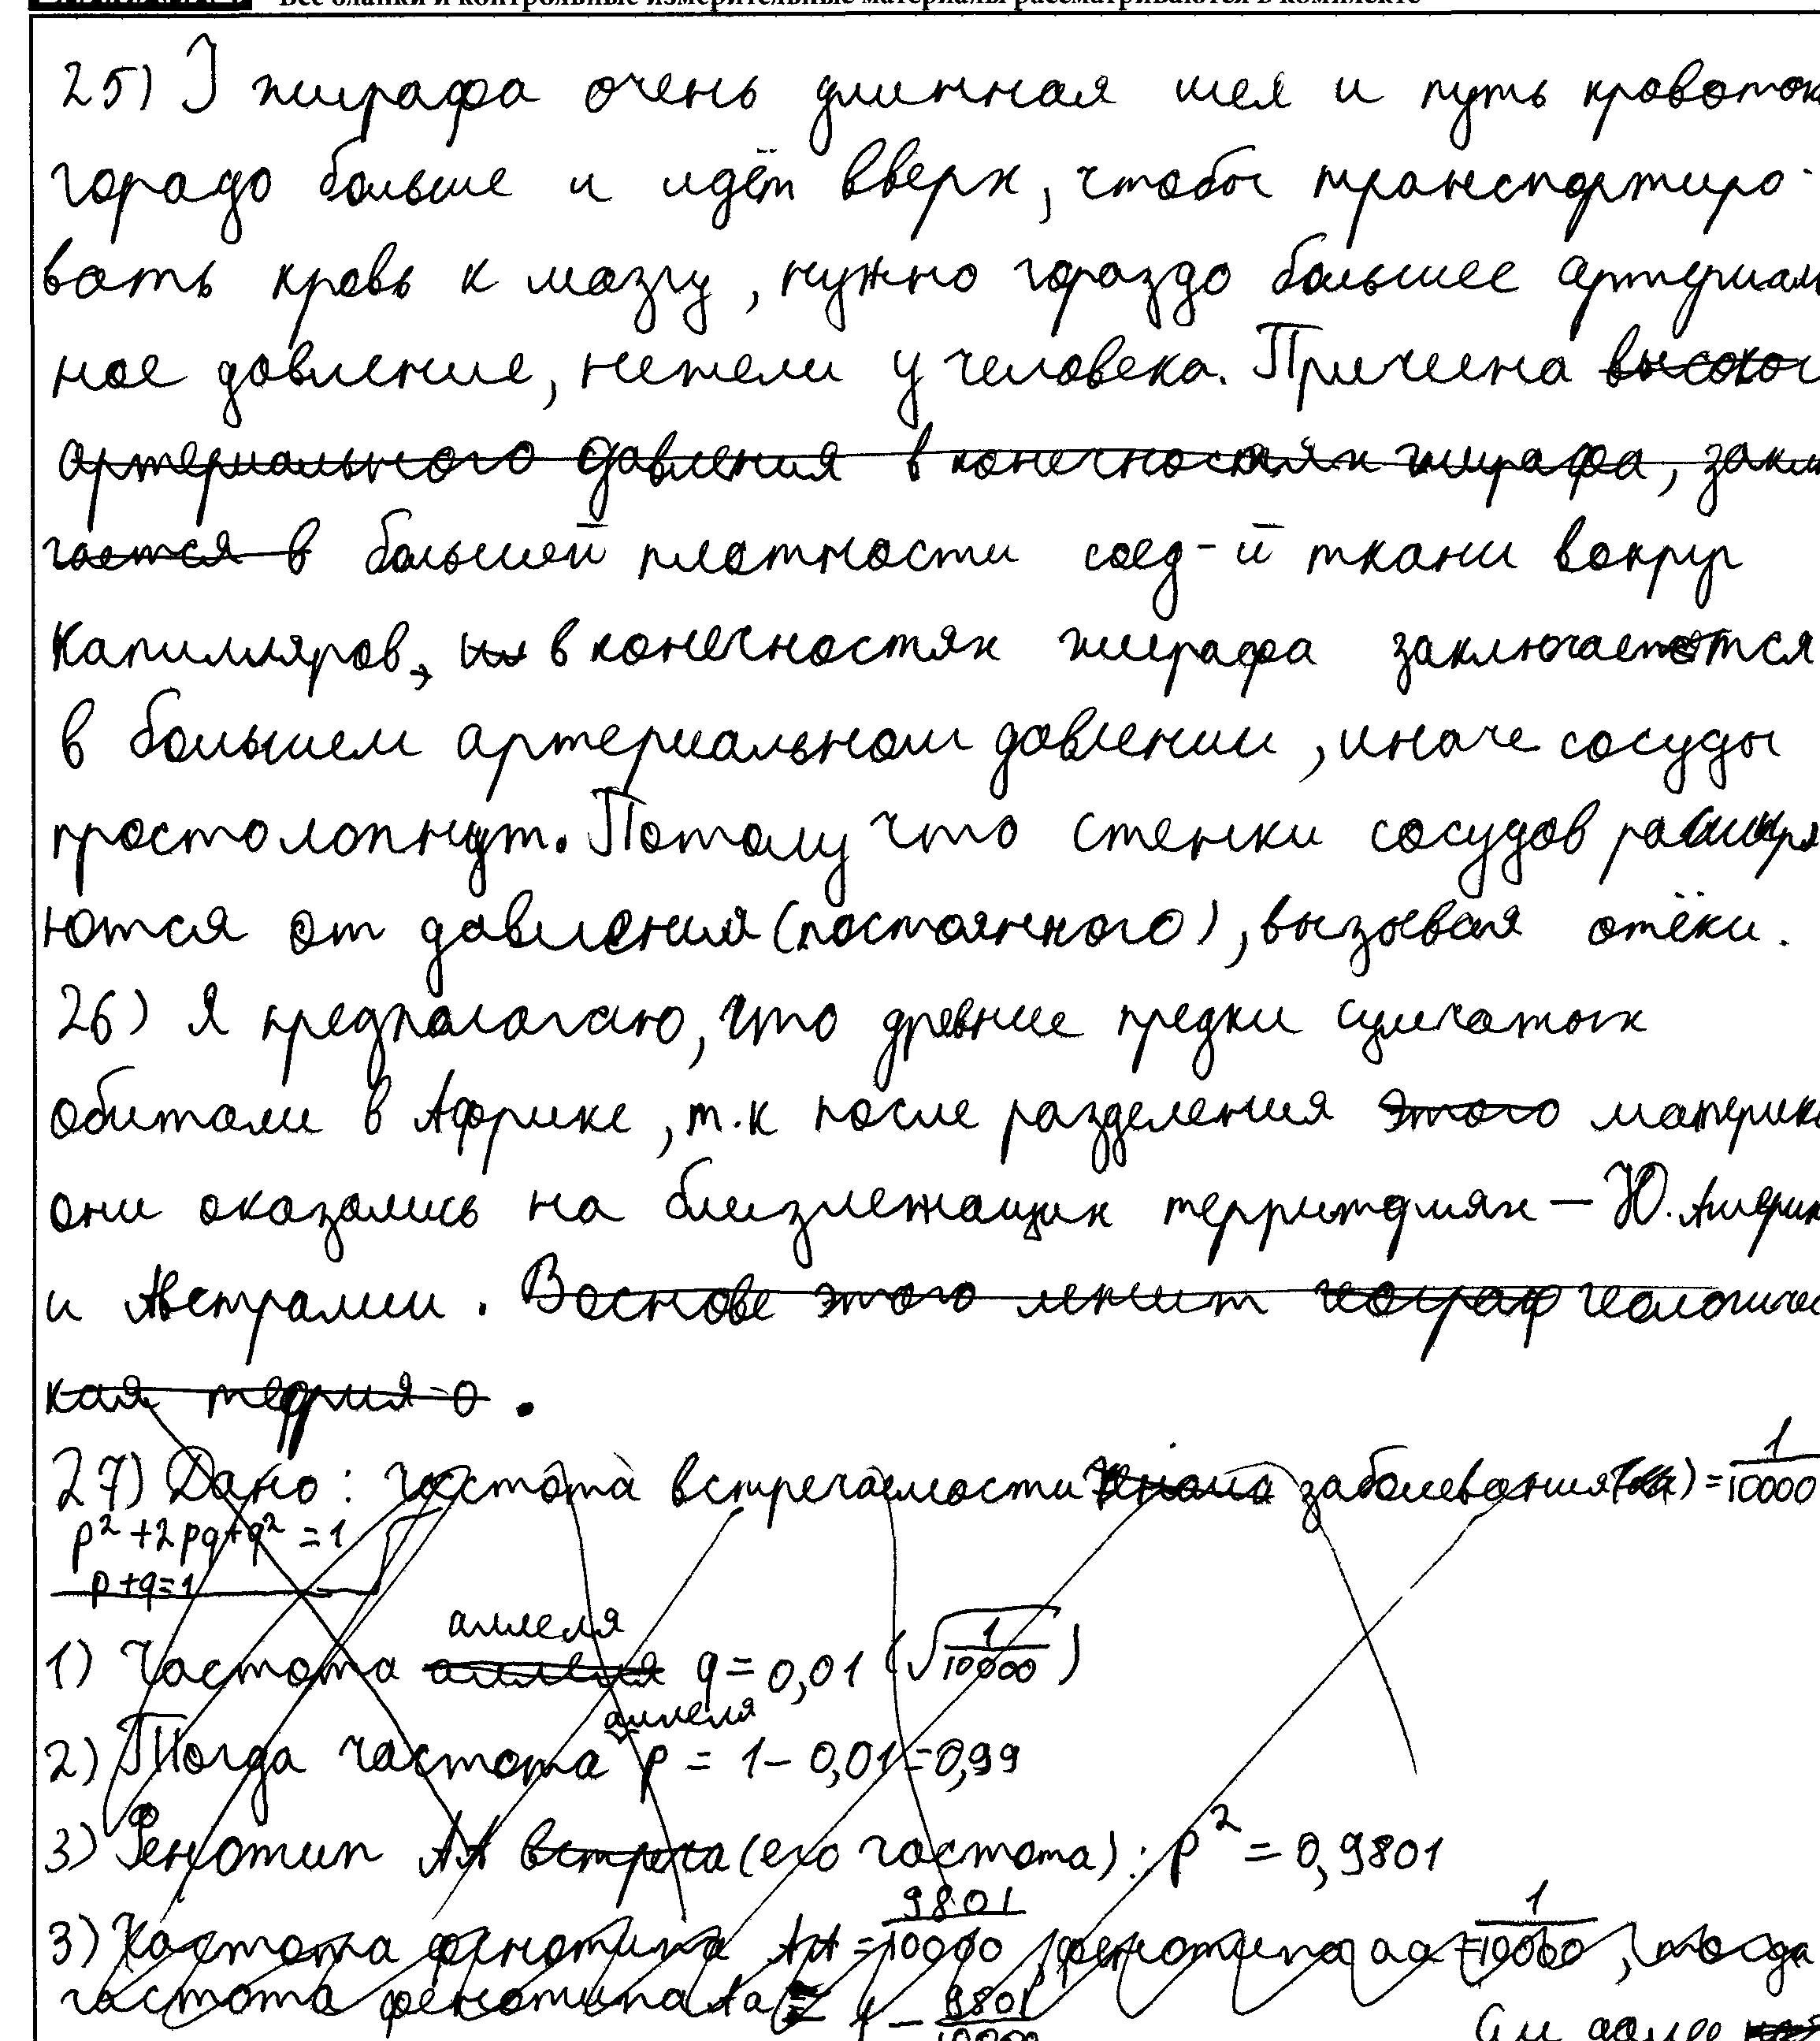 Все бланки и контрольные измерительные материалы рассматриваются в комплекте
25) У жирафа очень длинная шея и путь кровоток
горадо больше и идёт вверх, чтобы транспортиро-
вать кровь к мозгу, нужно гораздо большее артериаль
ное давление, нежели у человека. Причина высоко
артериального давления в конечностях жирафа, заклю
чается в большей плотности соед-й ткани вокруг
капилляров, их в конечностях жирафа заключается
в большем артериальном давлении, иначе сосуды
просто лопнут. Потому что стенки сосудов расширя
ются от давления (постоянного), вызывая отёки.
26) Я предпологаю, что древние предки сумчатых
обитали в Африке, т.к после разделения этого материк
они оказались на близлежащих территориях — Ю. Америк
и Австралии. В основе этого лежит географ геологичес
кая теория о .
27) Дано: частота встречаемости заболевания (аа) = 1/10000
p² + 2pq + q² = 1
p + q = 1
аллеля
1) Частота аллеля q = 0,01 (√1/10000)
аллеля
2) Тогда частота p = 1 - 0,01 = 0,99
3) Генотип АА встреча (его частота): p² = 0,9801
3) Частота фенотипа АА = 9801/10000, фенотипа аа = 1/10000, тогда
частота фенотипа Аа = 1 - 9801/10000
См далее